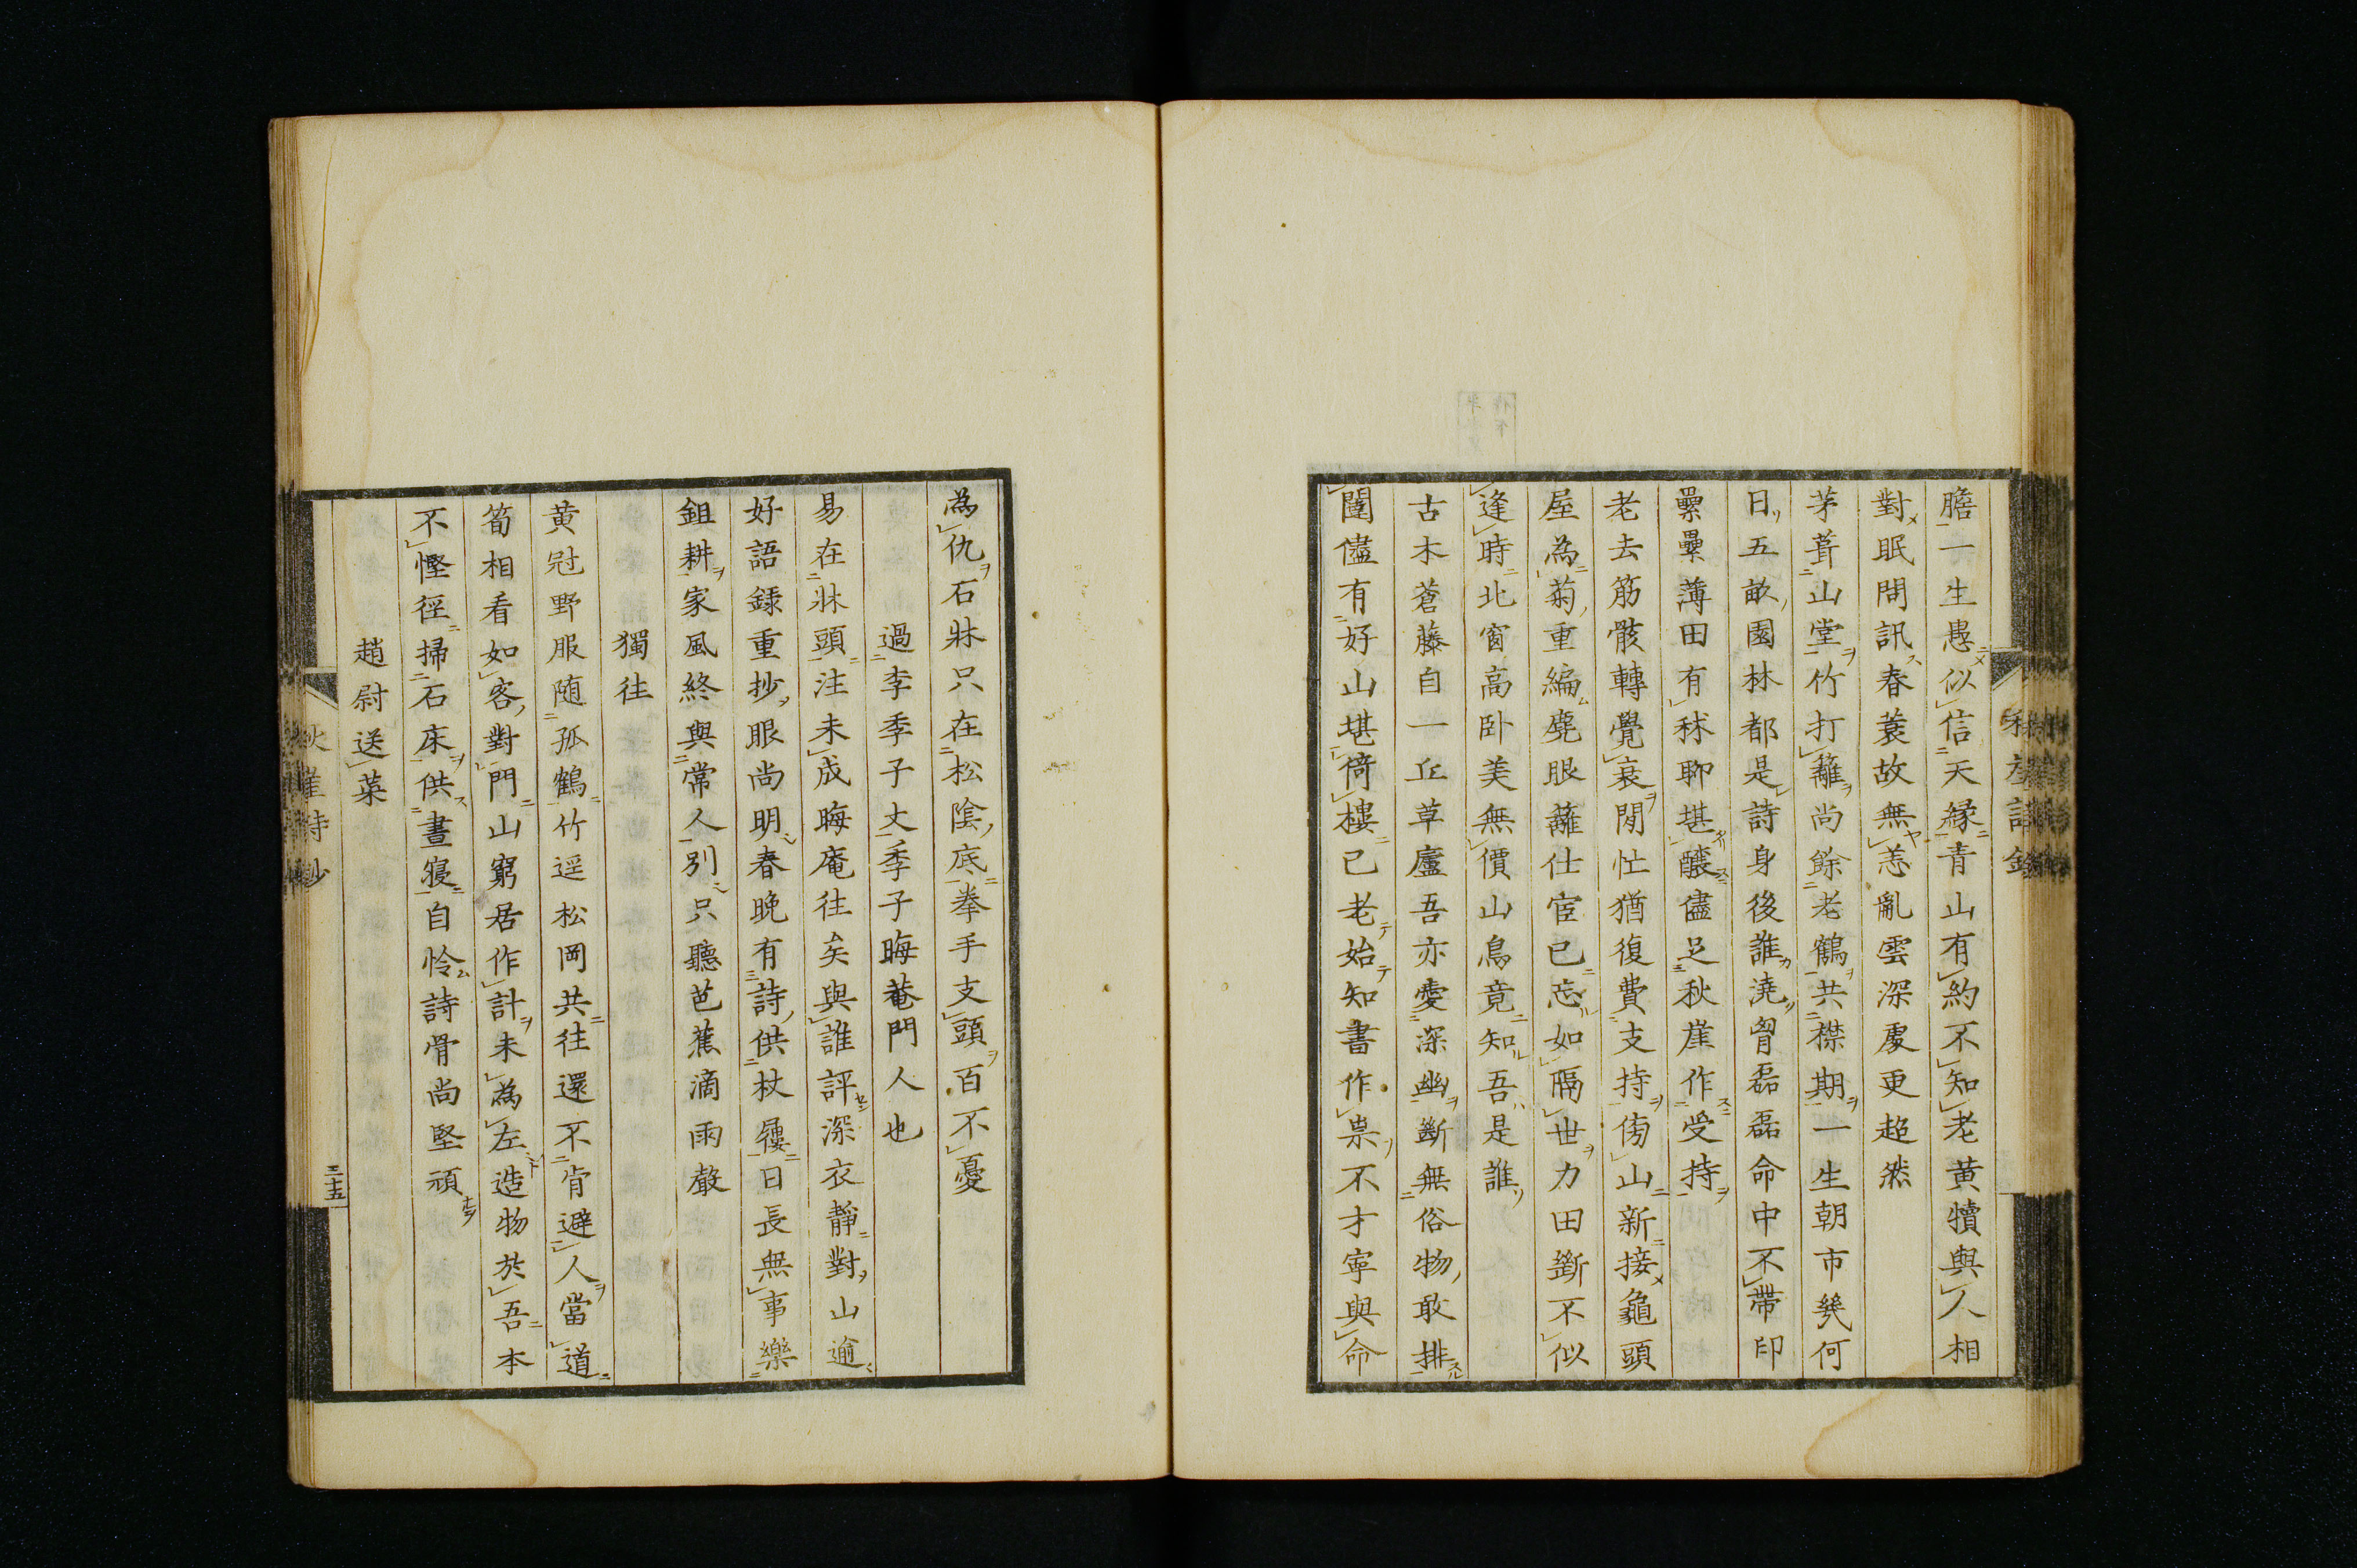 膽一生愚似信天緣青山有約不知老黃犢與人相
對眠問訊春蓑故無恙亂雲深處更超然
茅葺山堂竹打籬尚餘老鶴共襟期一生朝市幾何
日五畝園林都是詩身後誰澆胷磊磊命中不帶印
纍纍薄田有秫聊堪釀儘足秋崖作受持
老去筋骸轉覺衰閒忙猶復費支持傍山新接龜頭
屋為菊重編麂眼籬仕宦已忘如隔世力田斷不似
逢時北窗高卧美無價山鳥竟知吾是誰
古木蒼藤自一丘草廬吾亦愛深幽斷無俗物敢排
闥儘有好山堪倚樓已老始知書作祟不才寧與命
為仇石牀只在松陰底拳手支頭百不憂
過李季子丈季子晦菴門人也
易在牀頭注未成晦庵往矣與誰評深衣靜對山逾
好語錄重抄眼尚明春晚有詩供杖屨日長無事樂
鉏耕家風終與常人別只聽芭蕉滴雨聲
獨往
黃冠野服随孤鶴竹逕松岡共往還不肯避人當道
筍相看如客對門山窮居作計未為左造物於吾本
不慳徑掃石床供晝寢自怜詩骨尚堅頑
趙尉送菜
秋崖詩鈔
三十五